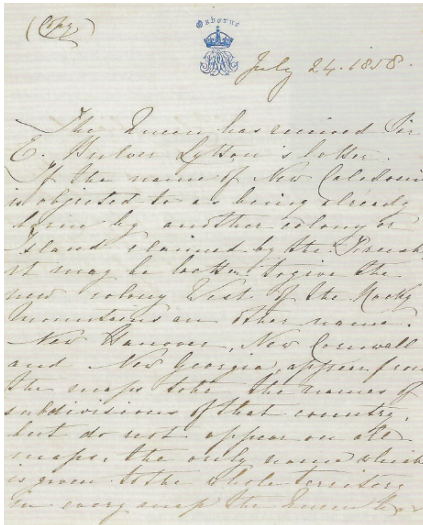 (Copy)
Osborne
July 24. 1858.
The Queen has received Sir
E. Bulwer Lytton's letter.
If the name of New Caledonia
is objected to as being already
borne by another colony or
Island claimed by the French,
it may be better to give the
new colony West of the Rocky
Mountains an other name.
New Hanover, New Cornwall
and New Georgia, appear from
the maps to be the names of
subdivisions of that country,
but do not appear on all
maps. the only name which
is given to the whole territory
in every map the Queen has